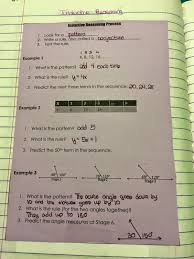 Inductive Reasoning
Inductive Reasoning Process
1. Look for a pattern
2. Write a rule, then called a conjecture
3. Test the rule.
1 2 3 4
Example 1
4, 8, 12, 16...
1. What is the pattern? add 4 each time
2. What is the rule? y=4x
3. Predict the next three terms in the sequence. 20, 24, 28
Example 2
1. What is the pattern? add 5
2. What is the rule? y=5n+1
3. Predict the 50th term in the sequence.
Example 3
1. What is the pattern? The acute angle goes down by
10 and the obtuse goes up by 10
2. What is the rule (for the two angles together)?
They add up to 180
3. Predict the angle measures at Stage 6.
30 150